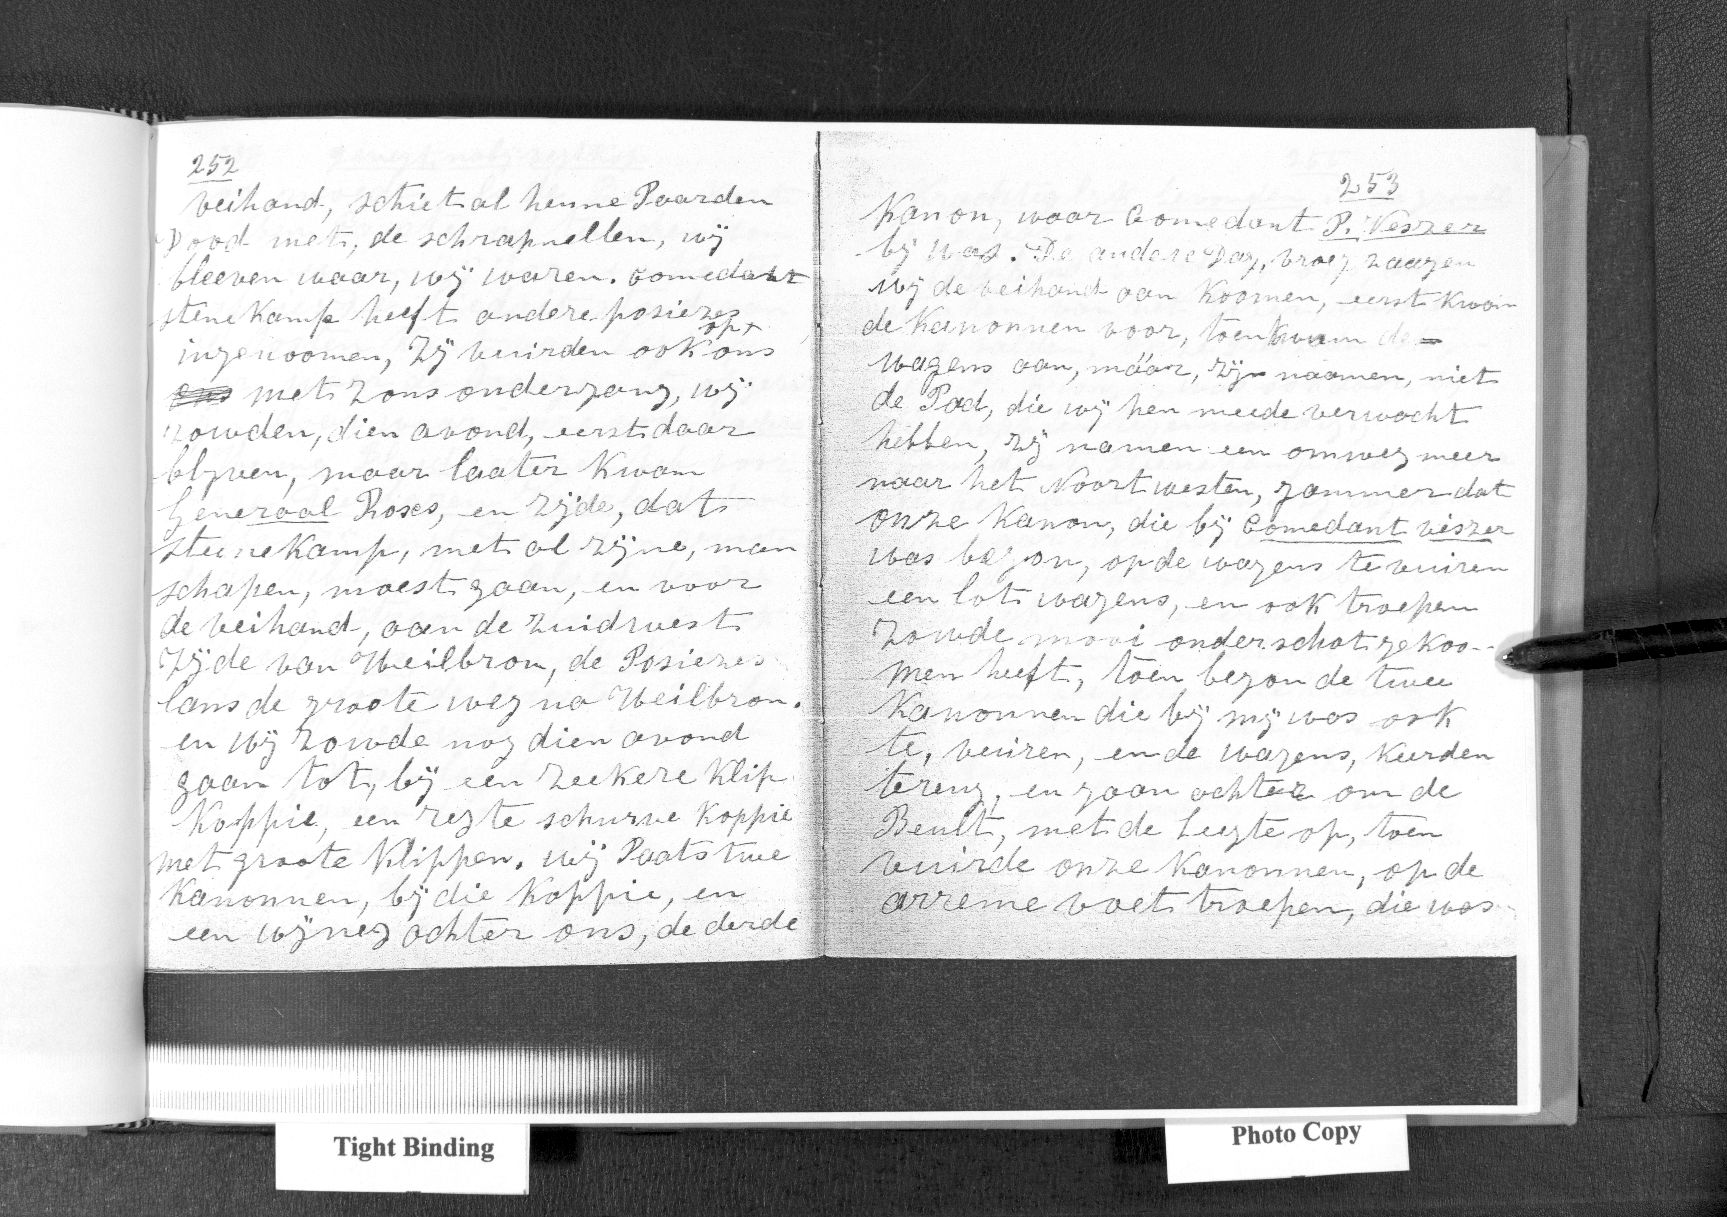 252
veihand, schiet al henne Paarden
Dood met, de schrapnellen, wij
bleeven waar, wij waren. comedant
stenekamp heeft andere posiezes
ingenoomen, zij vuirden ook op ons
met zons onderzang, wij
zowden, dien avond, eerst daar
blyven, maar laater kwam
Generaal Roses, en zijde, dat
steenekamp, met al zyne, man
schapen, moest gaan, en voor
de veihand, aan de zuidwest
zyde van Weilbron, de Posiezes
lans de groote weg na Weilbron.
en wij zowde nog dien avond
gaan tot, bij een zeekere Klip
Koppie, een regte schurve Koppie
met groote Klippen. wij Paats twe
Kanonnen, bij die Koppie, en
een wijneg achter ons, de derde
253
Kanon, waar Comedant P. Veszer
bij was. De andere Dag, vroeg zaagen
wij de veihand aan Koomen, eerst kwam
de Kanonnen voor, toen kwam de
wagens aan, máár, zij naamen, niet
de Pad, die wij hen meede verwacht
hebben, zij namen een omweg meer
naar het Noortwesten, jammer dat
onze Kanon, die bij Comedant viszer
was begon, op de wagens te vuiren
een lot wagens, en ook troepen
zowde mooi onderschot gekoo-
men heeft, toen begon de twee
Kanonnen die bij mij was ook
te, vuiren, en de wagens, keerden
tereug, en gaan achter om de
Beult, met de Leegte op, toen
vuirde onze Kanonnen, op de
arreme voet troepen, die was
Tight Binding
Photo Copy